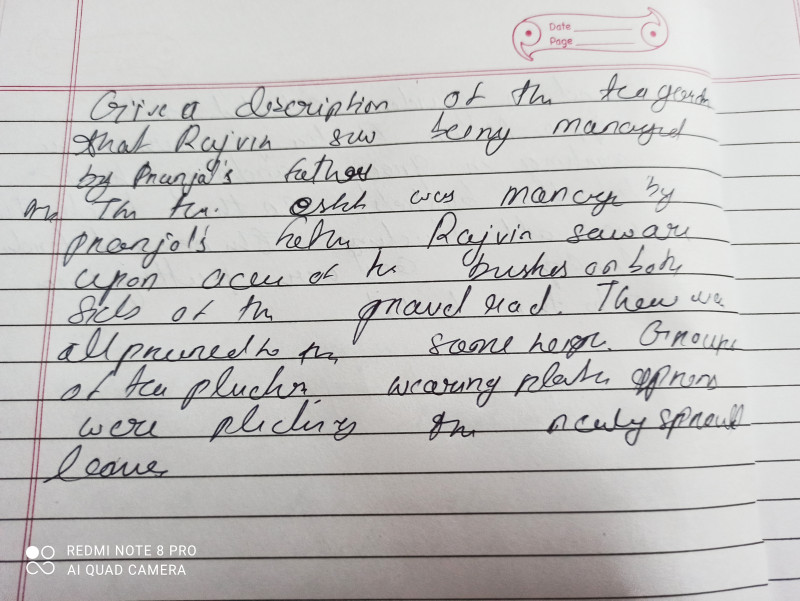 Date
Page
Give a description of the tea garden
that Rajvin saw being managed
by Pranjal's father
Ans The tea was manage by
pranjol's Rajvin saw
upon acer of bushes on both
Sids of the graved road. They
all pruned to the same Groups
of tea plucking wearing
were plucking the newly sprout
leaves
REDMI NOTE 8 PRO
AI QUAD CAMERA